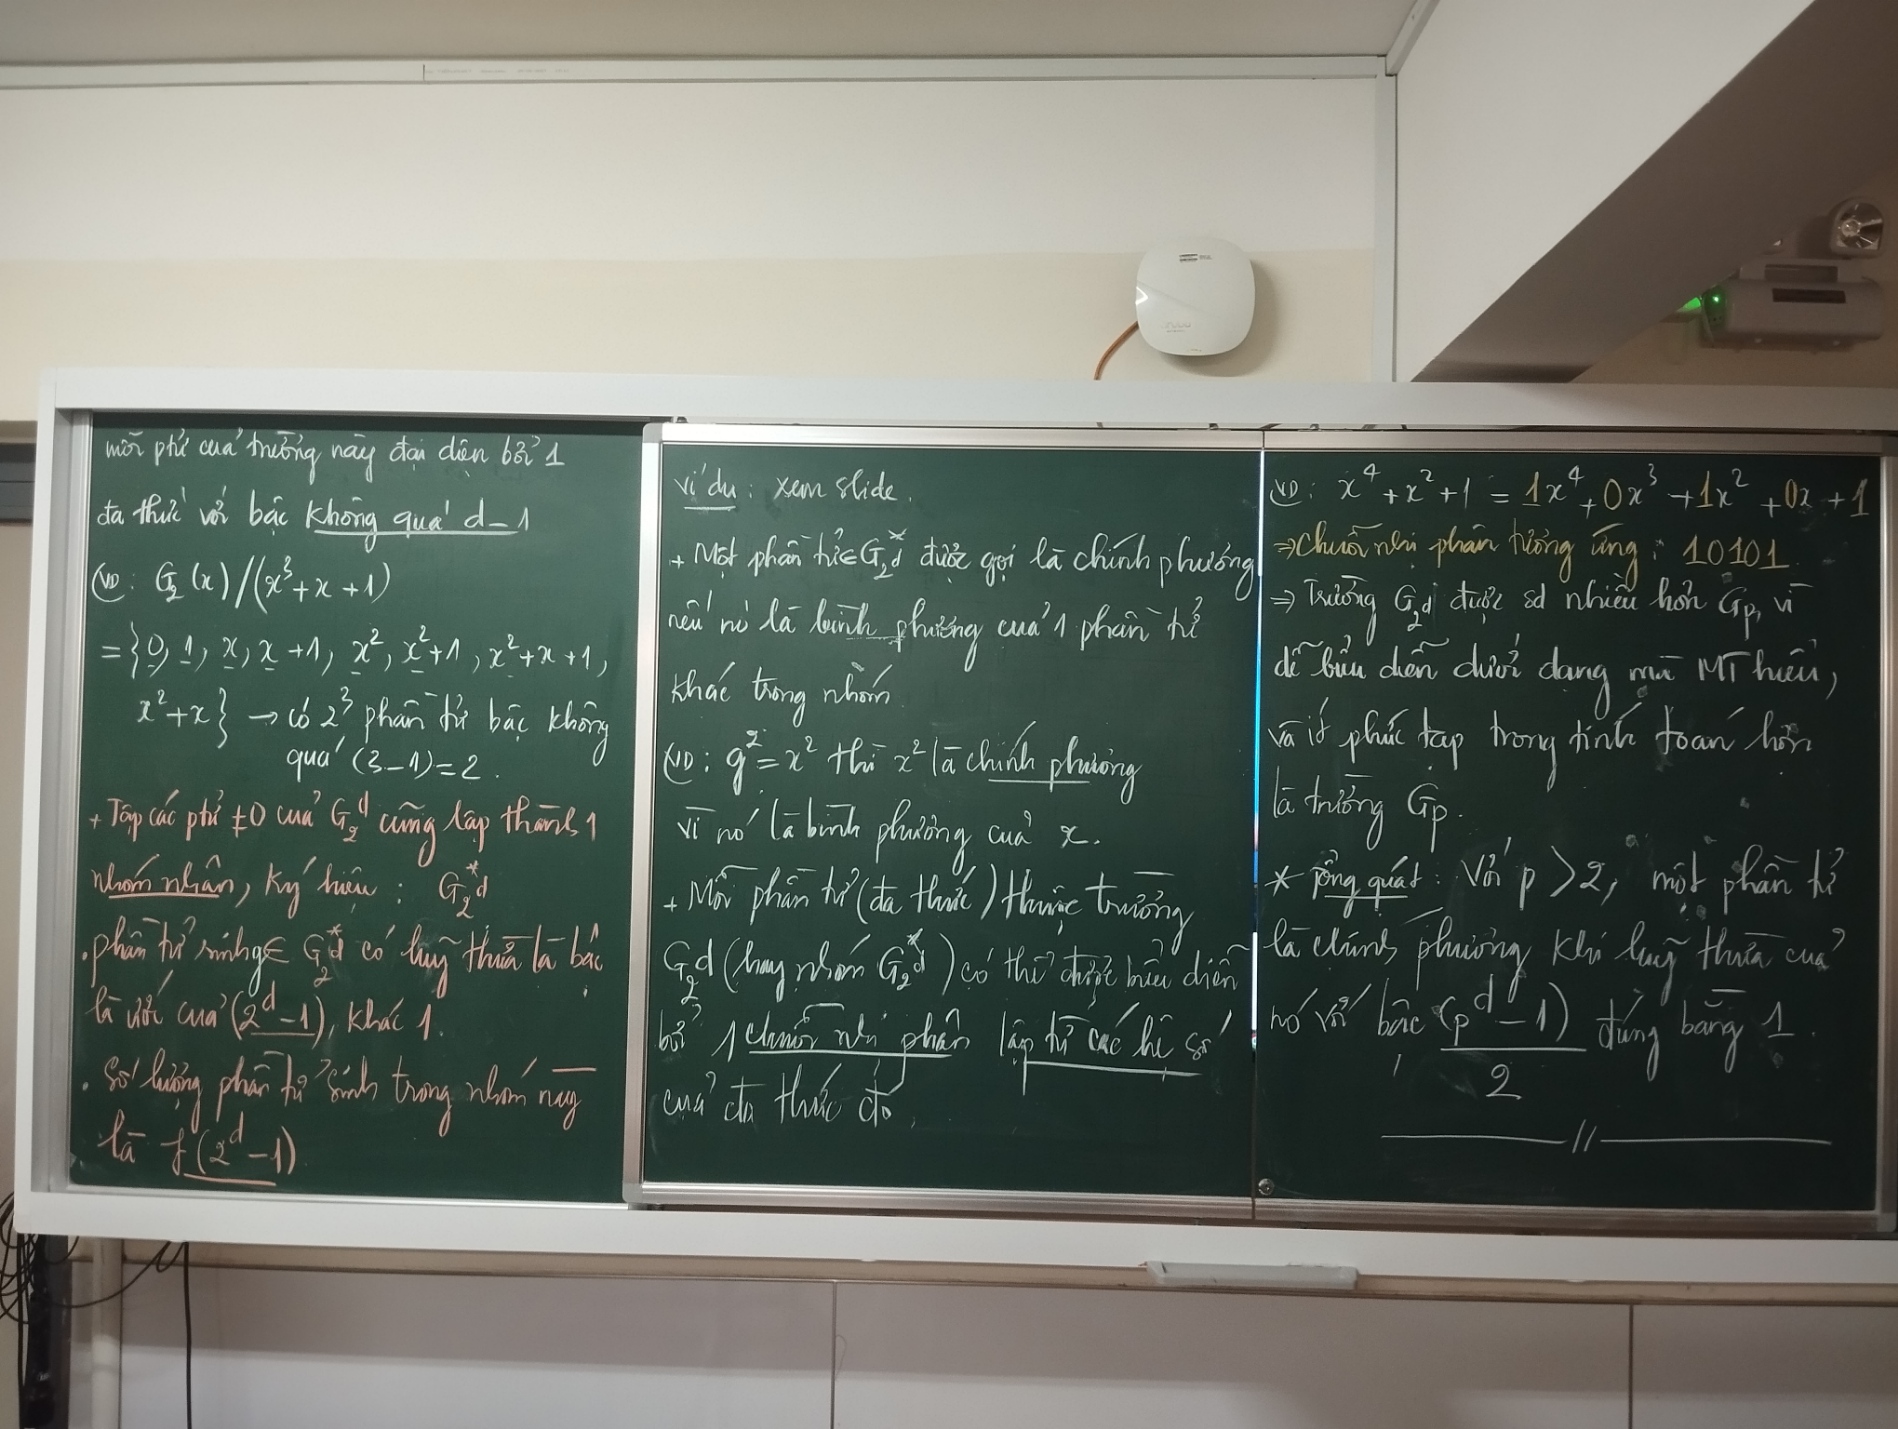 mỗi ptử của trường này đại diện bởi 1
đa thức với bậc không quá d-1
VD: G₂(x)/(x³+x+1)
= {0, 1, x, x+1, x², x²+1, x²+x+1,
x²+x} → có 2³ phần tử bậc không
quá (3-1)=2.
+ Tập các ptử ≠0 của G₂d cũng lập thành 1
nhóm nhân, ký hiệu: G₂*d
. phần tử sinh g∈ G₂*d có luỹ thừa là bậc
là ước của (2ᵈ-1), khác 1.
. Số lượng phần tử sinh trong nhóm này
là f(2ᵈ-1)
ví dụ: xem slide.
+ Một phần tử∈G₂*d được gọi là chính phương
nếu nó là bình phương của 1 phần tử
khác trong nhóm
VD: g²=x² thì x² là chính phương
vì nó là bình phương của x.
+ Mỗi phần tử (đa thức) thuộc trường
G₂d (hay nhóm G₂*d) có thể được biểu diễn
bởi 1 chuỗi nhị phân lập từ các hệ số
của đa thức đó.
VD: x⁴+x²+1 = 1x⁴+0x³+1x²+0x+1
⇒ chuỗi nhị phân tương ứng: 10101
⇒ Trường G₂d được sd nhiều hơn Gp, vì
dễ biểu diễn dưới dạng mà MT hiểu,
và ít phức tạp trong tính toán hơn
là trường Gp.
* Tổng quát: Với p>2, một phần tử
là chính phương khi luỹ thừa của
nó với bậc (pᵈ-1)/2 đúng bằng 1.